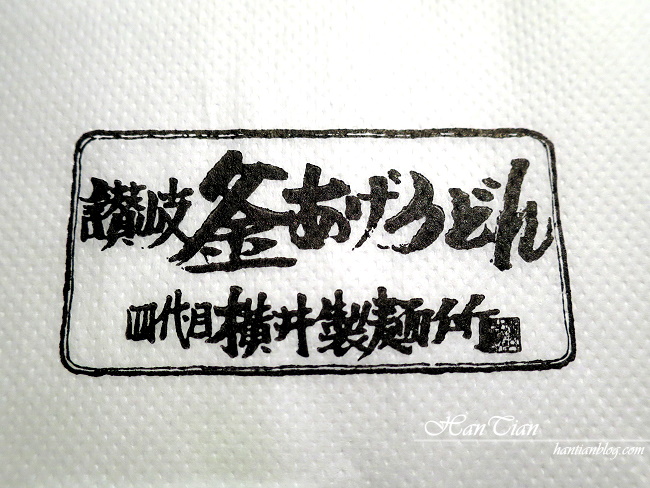 讃岐釜あげうどん
四代目横井製麺所
HanTian
hantianblog.com